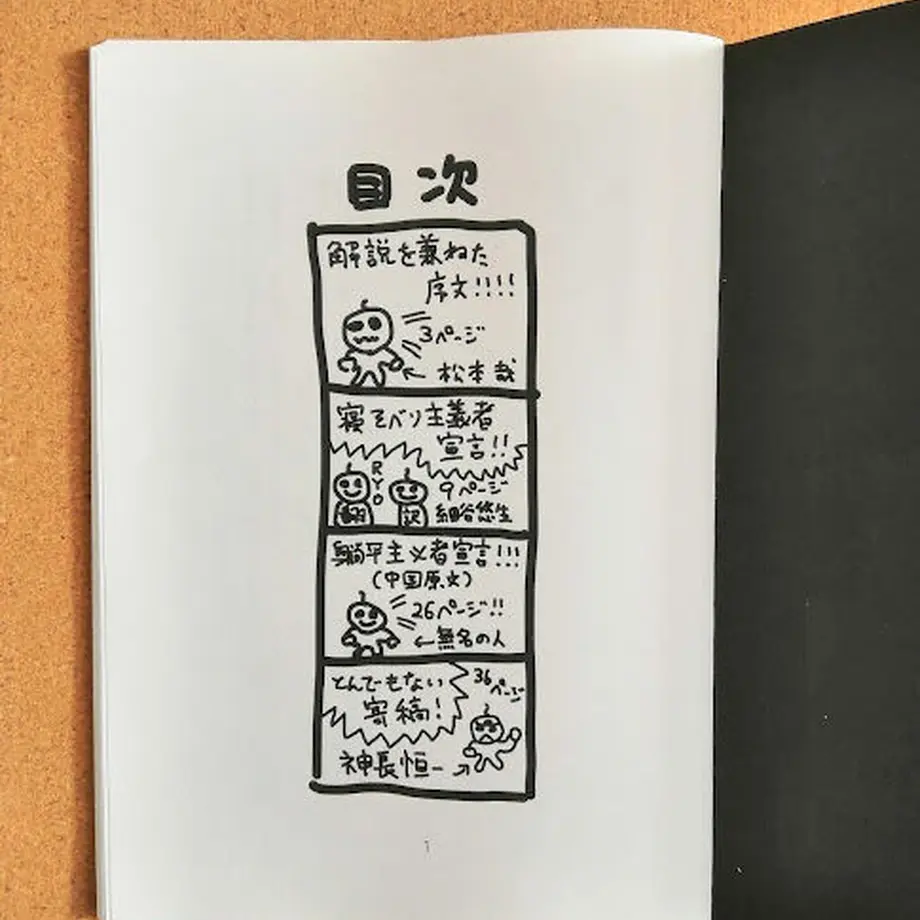 目次
解説を兼ねた
序文!!!!
3ページ
← 松本哉
寝そべり主義者
宣言!!
RYO
翻
訳
9ページ
細谷悠生
躺平主义者宣言!!!
(中国原文)
26ページ!!
←無名の人
とんでもない
寄稿!
36ページ
神長恒一→
1